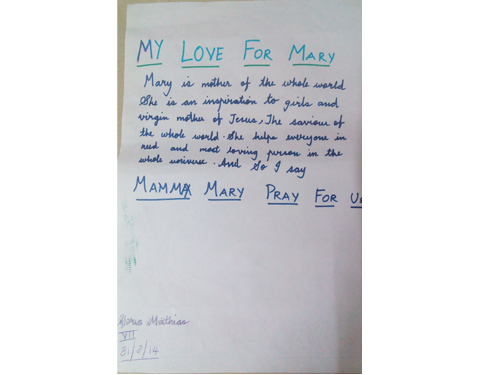 MY LOVE FOR MARY
Mary is mother of the whole world
She is an inspiration to girls and
virgin mother of Jesus, The saviour of
the whole world. She helps everyone in
need and most loving person in the
whole universe. And So I say
MAMMA MARY PRAY FOR US
Mathias
VII
31/2/14